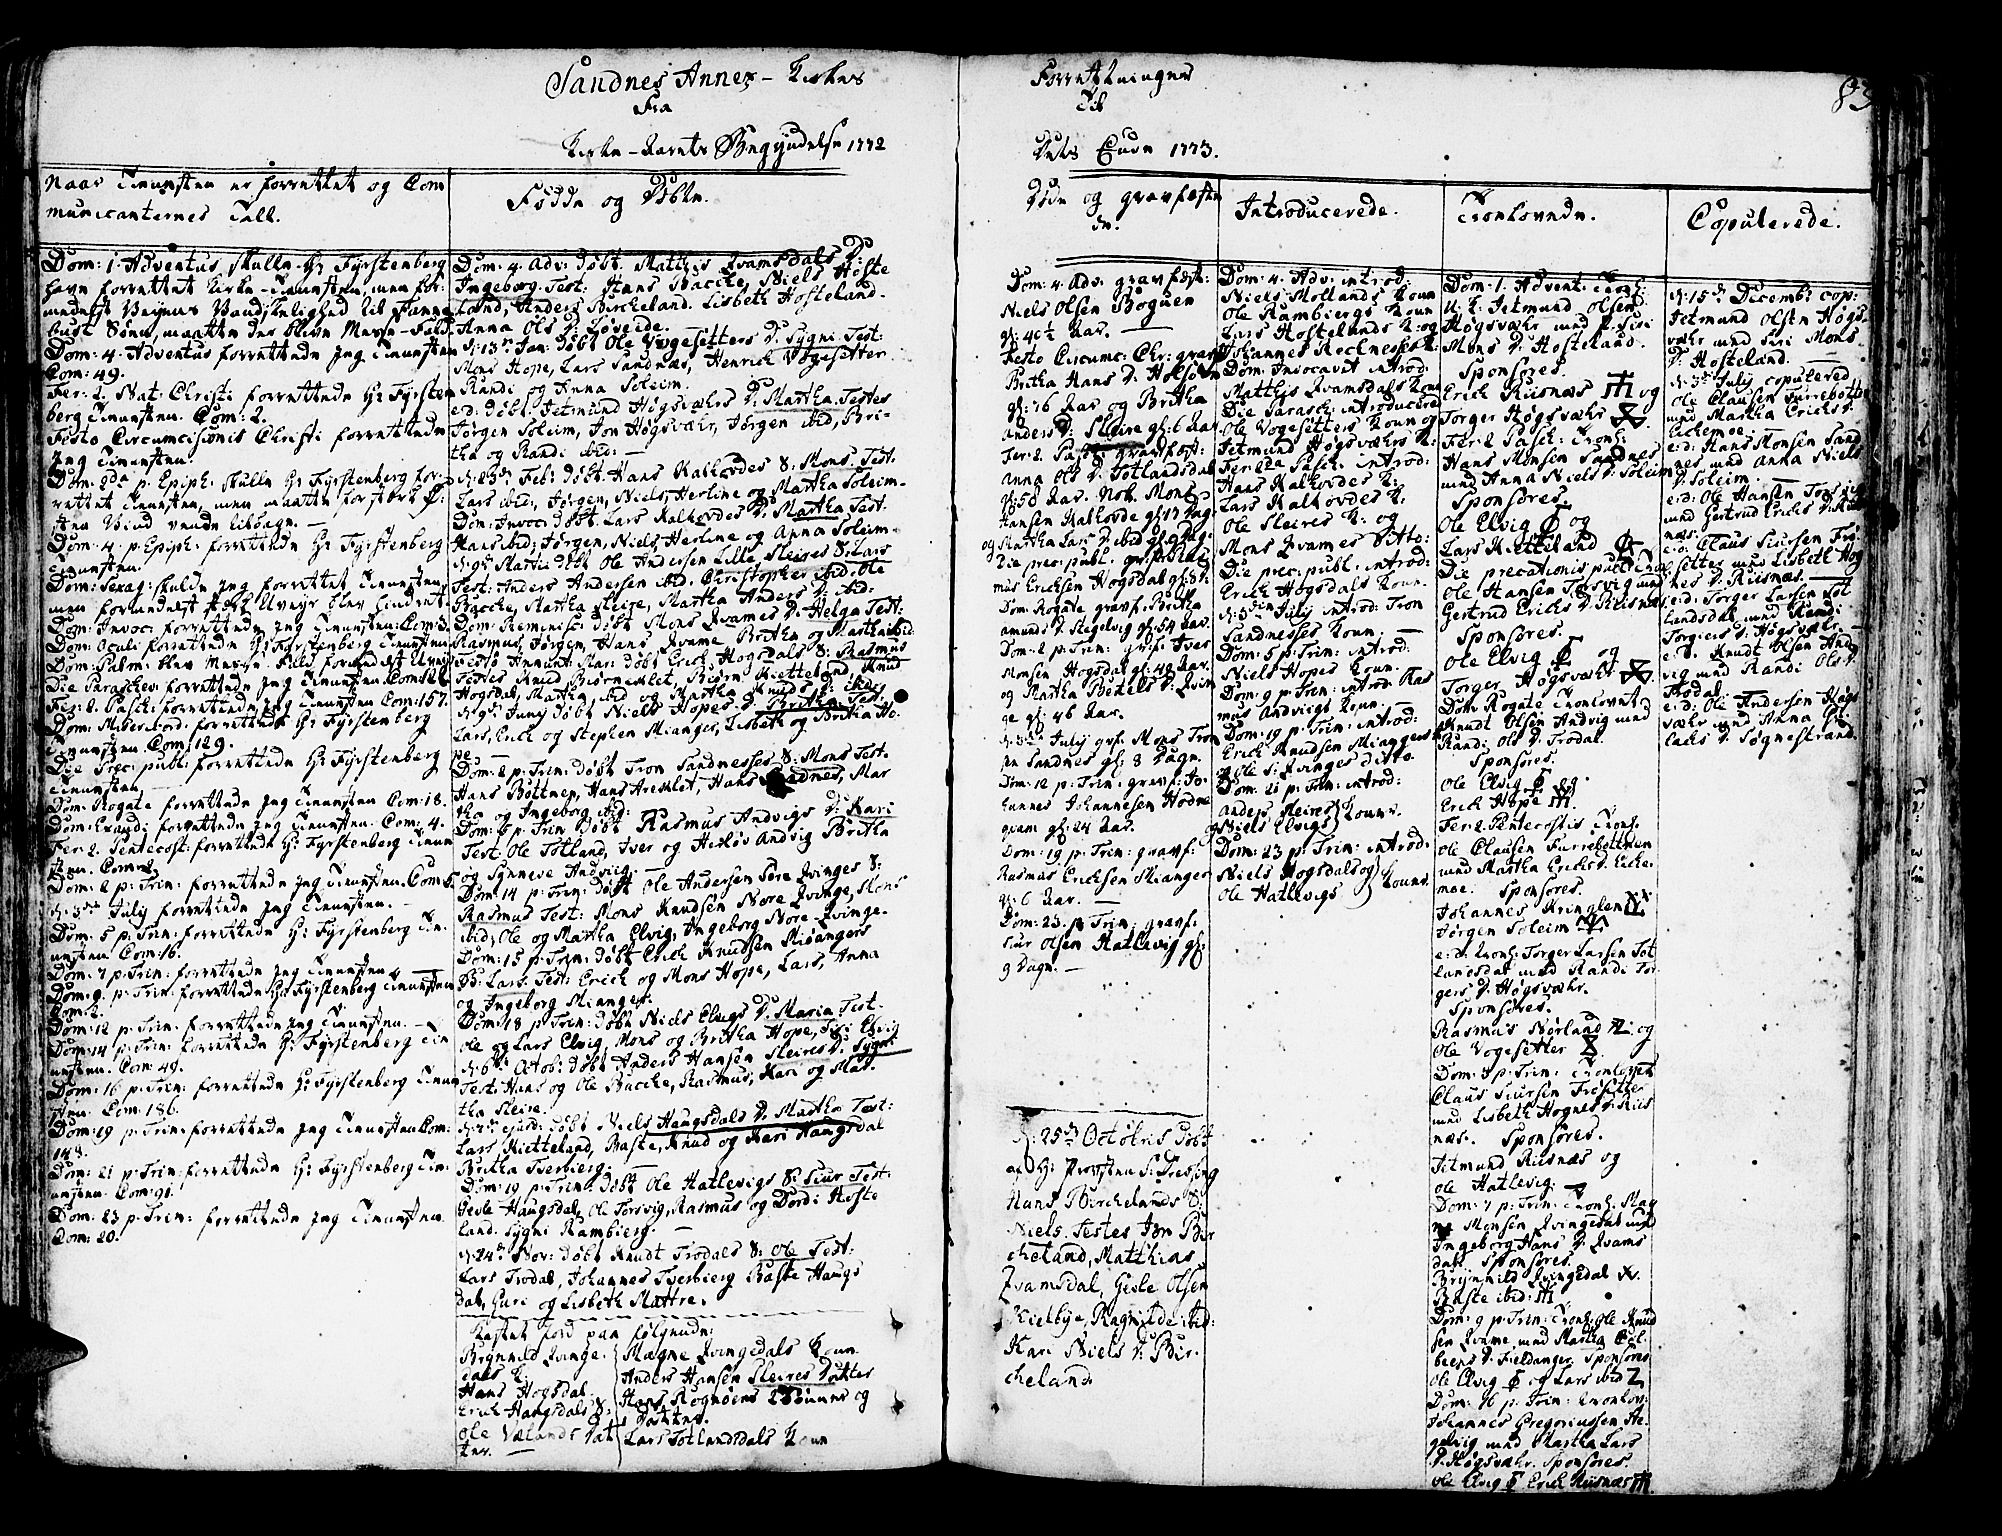 Sandnes Annex - Kirkes
Fra
Kirke-Aarets Begyndelse 1772
Forretninger
Til
Dets Ende 1773.
83
Naar Tienesten er forrettet og Com
municanternes Tall.
Dom: 1. Adventus skulle Hr Fyrstenberg
have forrettet Kirke-Tienesten, men for-
medelst Veyrets Vanskelighed til
maatte der blive Messe-Fald.
Dom: 4. Adventus forrettede jeg Tienesten
Com: 49.
Fer: 2. Nat. Christi forrettede Hr Fyrsten
berg Tienesten. Com: 2.
Festo Circumcisionis Christi forrettede
jeg Tienesten.
Dom: 2da p. Epiph. skulle Hr Fyrstenberg for-
rettet Tienesten, men maatte for stærk
Vind vende tilbage. —
Dom: 4. p. Epiph: forrettede Hr Fyrstenberg
Tienesten.
Dom: Sexag: skulde jeg forrettet Tienesten,
men formedelst Uveyr blev hindret.
Dom: Invoc: forrettede jeg Tienesten: Com: 3.
Dom: Oculi forrettede Hr Fyrstenberg Tienesten
Dom: Palm: blev Messe-Fald formedelst Uveyr
Die Parascheu: forrettede jeg Tienesten Com:
Fer: 2. Pasch: forrettede jeg Tienesten Com: 157.
Dom: Misericord: forrettede Hr Fyrstenberg
Tienesten Com: 129.
Die Prec: publ: forrettede Hr Fyrstenberg
Tienesten.
Dom: Rogate forrettede jeg Tienesten Com: 18.
Dom: Exaudi forrettede jeg Tienesten. Com: 4.
Fer: 2. Pentecost: forrettede Hr Fyrstenberg Tiene
sten. Com: 2
Dom: 2 p: Trin: forrettede jeg Tienesten. Com:
d: 3die July forrettede jeg Tienesten. —
Dom: 5 p: Trin: forrettede Hr Fyrstenberg Tie-
nesten. Com: 16.
Dom: 7 p: Trin: forrettede jeg Tienesten
Dom: 9. p: Trin: forrettede Hr Fyrstenberg Tienesten
Com: 2.
Dom: 12 p: Trin: forrettede jeg Tienesten. —
Dom: 14 p: Trin: forrettede Hr Fyrstenberg Tie
nesten. Com: 49.
Dom: 16 p: Trin: forrettede Hr Fyrstenberg Tiene
sten. Com: 186.
Dom: 19 p: Trin: forrettede jeg Tienesten Com:
148.
Dom: 21 p: Trin: forrettede Hr Fyrstenberg Tie-
nesten. Com: 91.
Dom: 23 p: Trin: forrettede jeg Tienesten.
Com: 20.
Fødde og Døbte.
Dom: 4. Adv: døbt Matthis Qvamsdals D:
Ingeborg. Test: Hans Bacche, Niels Hoste
land, Anders Bircheland. Lisbeth Hosteland.
Anna Ols D: Løveide.
d: 13de Jan: døbt Ole Vogesetters D: Sygni Test:
Mons Hope, Lars Sandnæs, Henrich Vogesetter
Randi og Anna Soleim.
e:d: døbt Jetmund Høgsværs D: Martha. Testes
Jørgen Soleim, Jon Høgsvær, Jørgen ibid, Bri-
tha og Randi ibid: —
d: 23de Feb: døbt Hans Kalhovdes S: Mons. Test.
Lars ibid: Jørgen, Niels, Herline og Martha Soleim.
Dom: Invoc: døbt Lars Kalhovdes D: Martha Test.
Hans ibid; Jørgen, Niels, Herline og Anna Soleim.
d: 9de Martii døbt Ole Andersen Lille Sleires S: Lars
Test: Anders Andersen ibid. Christopher ibid. Ole
Bacche, Martha Sleire, Martha Anders D: ibid:
Dom: Reminisc: døbt Mons Qvames D: Helga Test:
Rasmus, Jørgen, Hans Qvame, Britha og Martha ibid
Festo Annunt: Mar: døbt Erich Hogsdals S: Rasmus
Testes Knud Biørneklet, Biørn Kietteland, Knud
Hogsdal, Martha ibid og Martha Knuds D: ibid.
d: 9de Junij døbt Niels Hopes D: Britha. Test.
Lars, Erich og Stephen Mianger, Lisbeth og Britha Ho-
pe —
Dom: 2 p: Trin: døbt Tron Sandnesses S: Mons Test.
Hans Bottnen, Hans Areklet, Hans Sandnes, Mar
tha og Ingeborg ibid:
Dom: 5 p: Trin: døbt Rasmus Andvigs D: Kari
Test: Ole Totland, Iver og Andvig Britha
og Synneve Andvig. —
Dom: 14 p: Trin: døbt Ole Andersen Søre Qvinges S:
Rasmus Test: Mons Knudsen Nore Qvinge, Mons
ibid, Ole og Martha Elvig, Ingeborg Nore-Qvinge.
Dom: 15 p: Trin: døbt Erich Knudsen Miangers
S: Lars. Test: Erich og Mons Hope, Lars, Anna
og Ingeborg Mianger.
Dom: 18 p: Trin: døbt Niels Elvigs D: Maria Test.
Ole og Lars Elvig, Mons og Britha Hope, Siri Elvig
d: 6te Octob: døbt Anders Hansen Sleires D: Sygni
Test: Hans og Ole Bacche, Rasmus, Kari og Mar-
tha Sleire.
d: døbt Niels Haugsdals D: Martha Test:
Lars Kietteland, Baste, Knud og Kari Haugsdal
Britha Tverbierg. —
Dom: 19 p: Trin: døbt Ole Hatlevigs S: Siur Test:
Giele Haugsdal, Ole Torsvig, Rasmus og Dordi Hoste
land. Sygni Rambierg. —
d: 24de Nov: døbt Knudt Trodals S: Ole Test:
Lars Trodal, Johannes Tverbierg Baste Haugs
dal, Guri og Lisbeth Mattre.
Kastet Jord paa følgende:
Brynnild Qvinge-
dals K:
Hans Hogsdal.
Erich Haugsdals S:
Ole Dat
ter. —
Magne Qvingedals Kone
Anders Hansen Sleires Datter
Hans Rognøens 2 Sønner og
1 Datter.
Lars Totlandsdals Kone
Døde og gravfæste
de.
Dom: 4. Adv. gravfæst:
Niels Olsen Bognen
gl: 40½ Aar. —
Festo Circumc: Chr: gravf:
Britha Hans D: Holsen
gl: 76 Aar og Britha
Anders D: Sleire gl: 6 Aar
Fer: 2. Pasch: gravfæst:
Anna Ols D: Totlandsdal
gl: 58 Aar. Nok Mons
Hansen Kalhovde gl: 17 Dage
og Martha Lars D: ibid gl: 9 Dage.
Die prec: publ. gravf: Ras-
mus Erichsen Hogsdal gl:
Dom: Rogate gravf: Britha
Amunds D: Stegelvig gl: 54 Aar.
Dom: 2 p: Trin: gvf: Iver
Monsen Hogsdal gl: 48 Aar.
og Martha Botels D: Qvin
ge gl: 46 Aar.
d: 3die July gvf. Mons Tron
sen Sandnes gl: 8 Dage.
Dom: 12 p: Trin: gravf: Jo-
hannes Johannesen Hodne
qvam gl: 24 Aar.
Dom: 19 p: Trin: gravf:
Rasmus Ericksen Mianger
gl: 6 Aar. —
Dom: 23. p: Trin: gravf.
Siur Olsen Hatlevig gl:
9 Dage. —
d: 25de Octobris døbt
af Hr Provsten S: Dressing
Hans Birchelands S:
Niels. Testes Jon Bir
cheland, Matthias
Qvamsdal, Giele Olsen
Kielbye, Ragnilde ibid:
Kari Niels D: Bir-
cheland.
Introducerede.
Dom: 4. Adv: introd:
Niels Mollands Kone
Ole Rambiergs Kone
Lars Hostelands K: og
Johannes Rochnesses K:
Dom: Invocavit introd:
Matthis Qvamsdals Kone
Die Parasch: introducered
Ole Vogesetters Kone og
Jetmund Høgsværs K:
Fer: 2da Pasch: introd:
Hans Kalhovdes K:
Lars Kalhovdes K:
Ole Sleires K: og
Mons Qvames Ditto:
Die prec: publ: introd:
Erich Hogsdals Kone.
d: 3die July introd: Tron
Sandnesses Kone. —
Dom: 5 p: Trin: introd:
Niels Hopes Kone.
Dom: 9 p: Trin: introd: Ras
mus Andvigs Kone.
Dom: 19 p: Trin: introd:
Erich Knudsen Miangers K:
Ole S: Qvinges ditto.
Dom: 21 p: Trin: introd:
Anders Sleires
og Niels Elvigs Koner.
Dom: 23 p: Trin: introd:
Niels Hogsdals og
Ole Hatlevigs Koner.
Trolovede.
Dom: 1. Advent: Trol:
U: K: Jetmund Olsen
Høgsvær med P. Siri
Mons D: Hosteland.
Sponsores.
Erich Riisnæs og
Torger Høgsvær
Fer: 2 Pasch: Trol:
Hans Monsen Sandnes
med Anna Niels D: Soleim
Sponsores.
Ole Elvig og
Lars Kietteland
Die precationis publ: Trol:
Ole Hansen Torsvig med
Gertrud Erichs D: Riisnæs.
Sponsores.
Ole Elvig og
Torger Høgsvær
Dom: Rogate Trolovet
Knudt Olsen Andvig med
Randi Ols D: Trodal.
Sponsores.
Ole Elvig og
Erich Hope
Fer: 2 Pentecostis Trol.
Ole Clausen Furrebottnen
med Martha Erichs D. Eiche-
moe. Sponsores.
Johannes Kringlen
Jørgen Soleim
e: d: Trol: Torger Larsen Tot
landsdal med Randi Tor-
gers D: Høgsvær.
Sponsores.
Rasmus Nørland og
Ole Vogesetter
Dom: 3 p: Trin: Trolovet
Claus Siursen Frøsetter
med Lisbeth Hognes D: Riis
næs. Sponsores.
Jetmund Riisnæs og
Ole Hatlevig.
Dom: 7 p: Trin: Trol. Mag
ne Monsen Qvingedal med
Ingeborg Hans D: Qvams
dal. Sponsores.
Brynnild Qvingedal
Baste ibid:
Dom: 9 p: Trin: Trol: Ole Knud
sen Qvame med Martha Col-
beens D: Fieldanger. Sponsores
Ole Elvig og Lars ibid
Dom: 16 p: Trin: Trolov:
Johannes Gregoriussen Ste-
gelvig med Martha Lars
D: Høgsvær. Sponsores.
Ole Elvig Erich Riisnæs
Copulerede.
d: 15de Decemb: cop:
Jetmund Olsen Høgs-
vær med Siri Mons
D: Hosteland. —
d: 3die July copulered
Ole Clausen Furrebottn
med Martha Erichs D:
Eichemoe. —
e:d: Hans Monsen Sand
nes med Anna Niels
D: Soleim. —
e:d: Ole Hansen Torsvig
med Gertrud Erichs D: Riis
næs.
e:d: Claus Siursen Frø-
setter med Lisbeth Hog
nes D: Riisnæs. —
e:d: Torger Larsen Tot
landsdal med Randi
Torgers D: Høgsvær. —
e:d. Knudt Olsen And
vig med Randi Ols D:
Trodal.
e:d: Ole Andersen Høgs
vær med Anna
D: Søgnestrand.